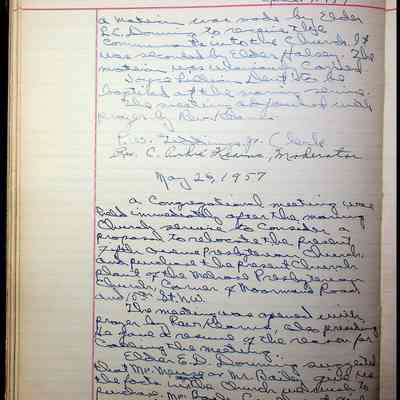 a motion was made by Elder
E.C. Downing to receive the
Communicants into the Church. It
was seconded by Elder Halsey. The
motion was unanimously carried
Joyce to be
baptized at the morning service.
The meeting adjourned with
prayer by Rev. Kearns.
Jr. Clerk
Rev. C. Kearns, Moderator
May 26, 1957
a Congregational meeting was
held immediately after the morning
Church service to consider a
proposal to relocate the present
Fifth Avenue Presbyterian Church
and purchase the present Church
plant of the Melrose Presbyterian
Church, Corner of Moorman Road
and 10th St. N.W.
The meeting was opened with
prayer by Rev. Kearns, also presiding
he gave a resume of the reason for
Calling the meeting.
Elder E.D. Downing suggested
that Mr. or Mr. Baily give us
the facts in the Church
purchase. Mr.